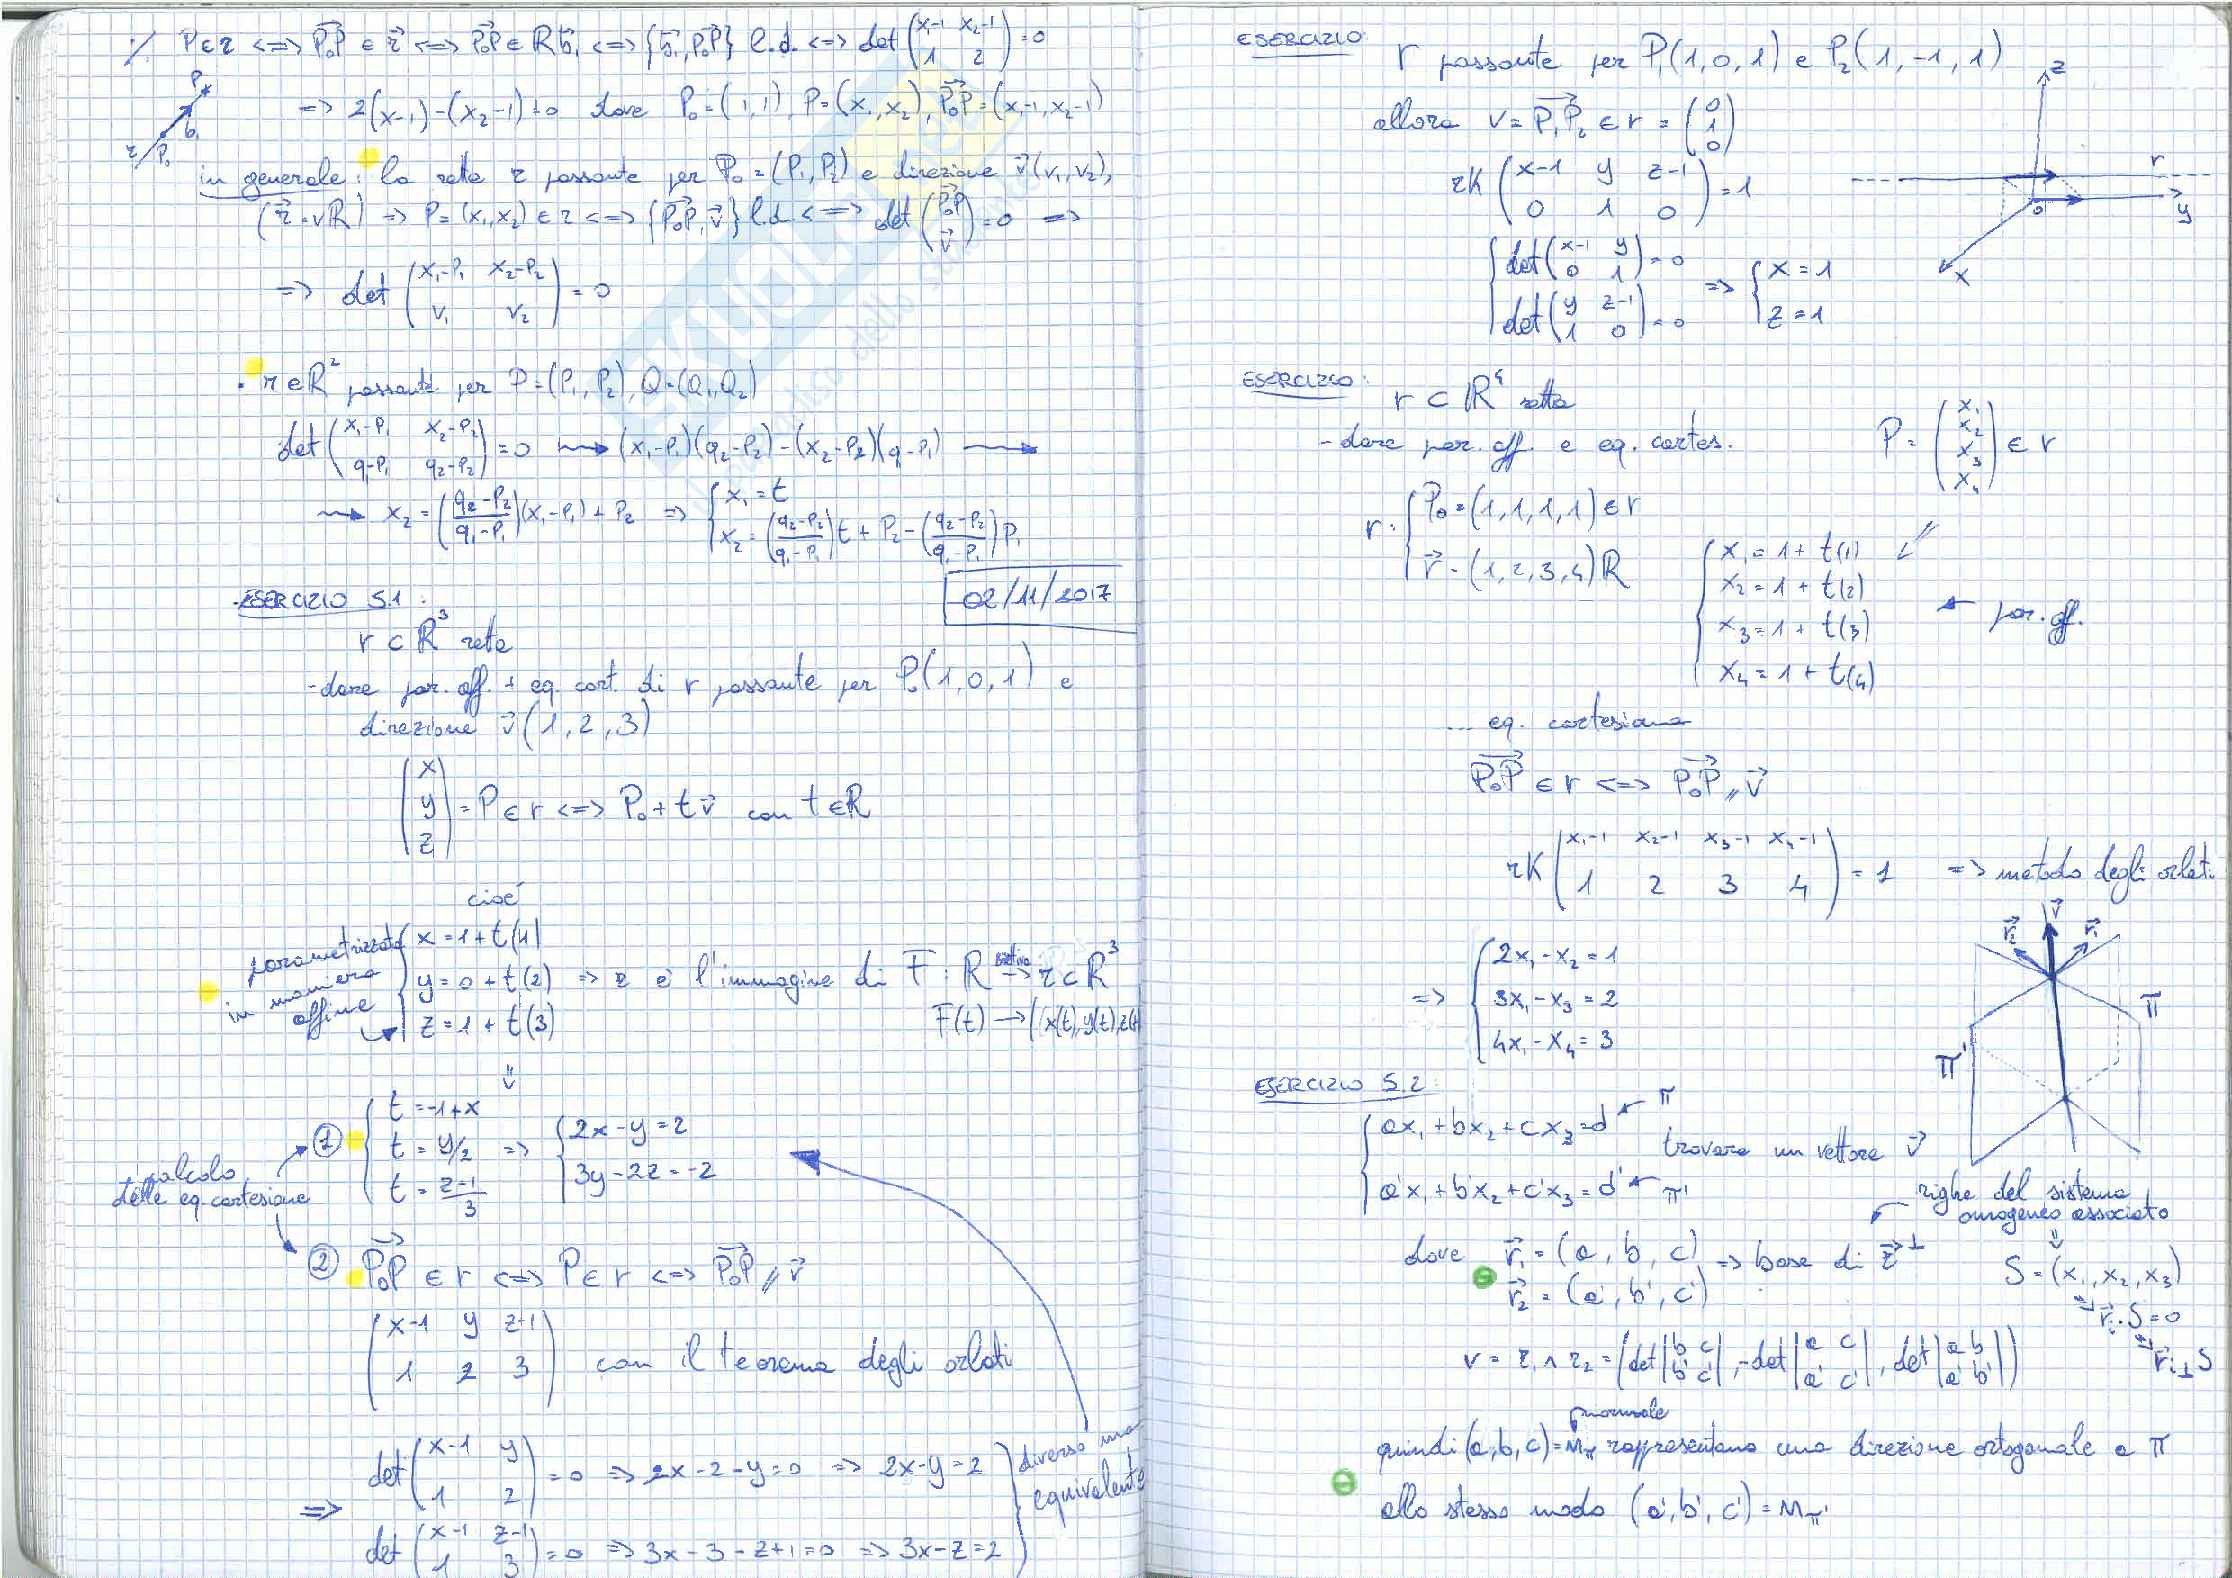 ·/. P∈r <=> P₀P ∈ r <=> P₀P ∈ ℝb₁ <=> {b₁, P₀P} l.d. <=> det (x₁-1 x₂-1 / 1 2) = 0
=> 2(x₁-1)-(x₂-1)=0 dove P₀=(1,1), P=(x₁,x₂), P₀P=(x₁-1, x₂-1)
P
b₁
r P₀
in generale: la retta r passante per P₀=(P₁,P₂) e direzione v(v₁,v₂),
(r=vℝ) => P=(x₁,x₂)∈r <=> {P₀P, v} l.d. <=> det (P₀P / v) = 0 =>
=> det (x₁-P₁ x₂-P₂ / v₁ v₂) = 0
· r∈ℝ² passante per P=(P₁,P₂), Q=(Q₁,Q₂)
det (x₁-P₁ x₂-P₂ / q₁-P₁ q₂-P₂) = 0 → (x₁-P₁)(q₂-P₂)-(x₂-P₂)(q₁-P₁) →
→ x₂ = (q₂-P₂ / q₁-P₁)(x₁-P₁)+P₂ => { x₁=t
x₂=(q₂-P₂ / q₁-P₁)t+P₂-(q₂-P₂ / q₁-P₁)P₁
02/11/2017
-ESERCIZIO 5.1:
r⊂ℝ³ retta
-dare par. aff. + eq. cart. di r passante per P₀(1,0,1) e
direzione v(1,2,3)
(x / y / z) = P∈r <=> P₀+tv con t∈ℝ
cioè
parametrizzata
in maniera
affine
x=1+t(1)
y=0+t(2) => r è l'immagine di F: ℝ → r⊂ℝ³
z=1+t(3) F(t) → (x(t),y(t),z(t)
⇓
calcolo
delle eq. cartesiane
① { t=-1+x
t=y/2 => { 2x-y=2
t=z-1/3 3y-2z=-2
② P₀P ∈ r <=> P∈r <=> P₀P // v
(x-1 y z-1 / 1 2 3) con il teorema degli orlati
=> det (x-1 y / 1 2) = 0 => 2x-2-y=0 => 2x-y=2
det (x-1 z-1 / 1 3) = 0 => 3x-3-z+1=0 => 3x-z=2
diverso ma
equivalente
ESERCIZIO:
r passante per P₁(1,0,1) e P₂(1,-1,1)
allora v=P₁P₂∈r = (0 / 1 / 0)
rk (x-1 y z-1 / 0 1 0) = 1
{ det (x-1 y / 0 1) = 0
det (y z-1 / 1 0) = 0 => { x=1
z=1
z
r
o
y
x
ESERCIZIO:
r⊂ℝ⁴ retta
-dare par. aff. e eq. cartes. P=(x₁ / x₂ / x₃ / x₄)∈r
r: { P₀=(1,1,1,1)∈r
r=(1,2,3,4)ℝ
x₁=1+t(1)
x₂=1+t(2)
x₃=1+t(3) ← par. aff.
x₄=1+t(4)
... eq. cartesiana
P₀P∈r <=> P₀P // v
rk (x₁-1 x₂-1 x₃-1 x₄-1 / 1 2 3 4) = 1 => metodo degli orlati
=> { 2x₁-x₂=1
3x₁-x₃=2
4x₁-x₄=3
r₂ v r₁
π
π'
ESERCIZIO 5.2:
ax₁+bx₂+cx₃=d ← π
trovare un vettore v
a'x₁+b'x₂+c'x₃=d' ← π'
righe del sistema
omogeneo associato
dove r₁=(a,b,c) => base di r⊥
r₂=(a',b',c')
S=(x₁,x₂,x₃)
=> rᵢ·S=0
=> rᵢ⊥S
v=r₁∧r₂=(det|b c / b' c'|, -det|a c / a' c'|, det|a b / a' b'|)
normale
quindi (a,b,c)=nπ rappresentano una direzione ortogonale a π
allo stesso modo (a',b',c')=nπ'